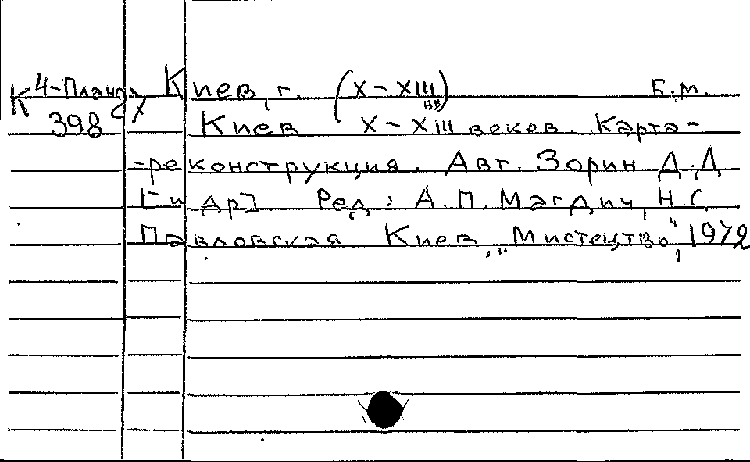 К 4-Планд/X Киев, г. (X-XIII вв) Б.м.
398 Киев X-XIII веков. Карта-
-реконструкция. Авт. Зорин Д.Д
[и др] Ред.: А.П. Магдич, Н.С.
Павловская Киев, "Мистецтво", 1972